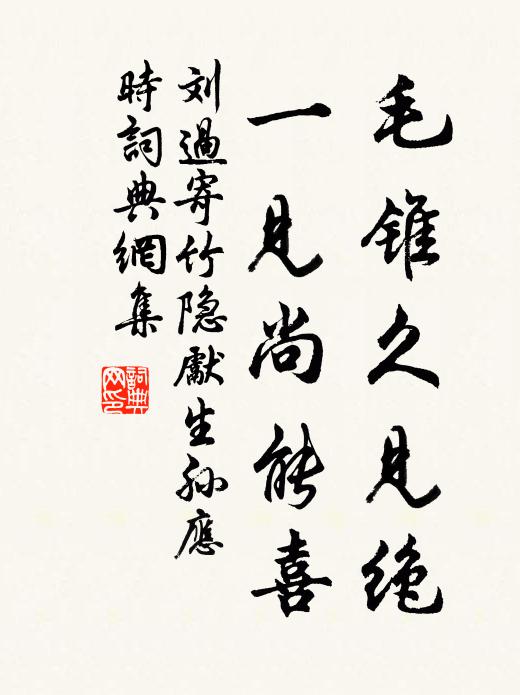 毛锥久见绝
一见尚能喜
刘過寄竹隐獻生孙應
時詞典網集
詞典
网印